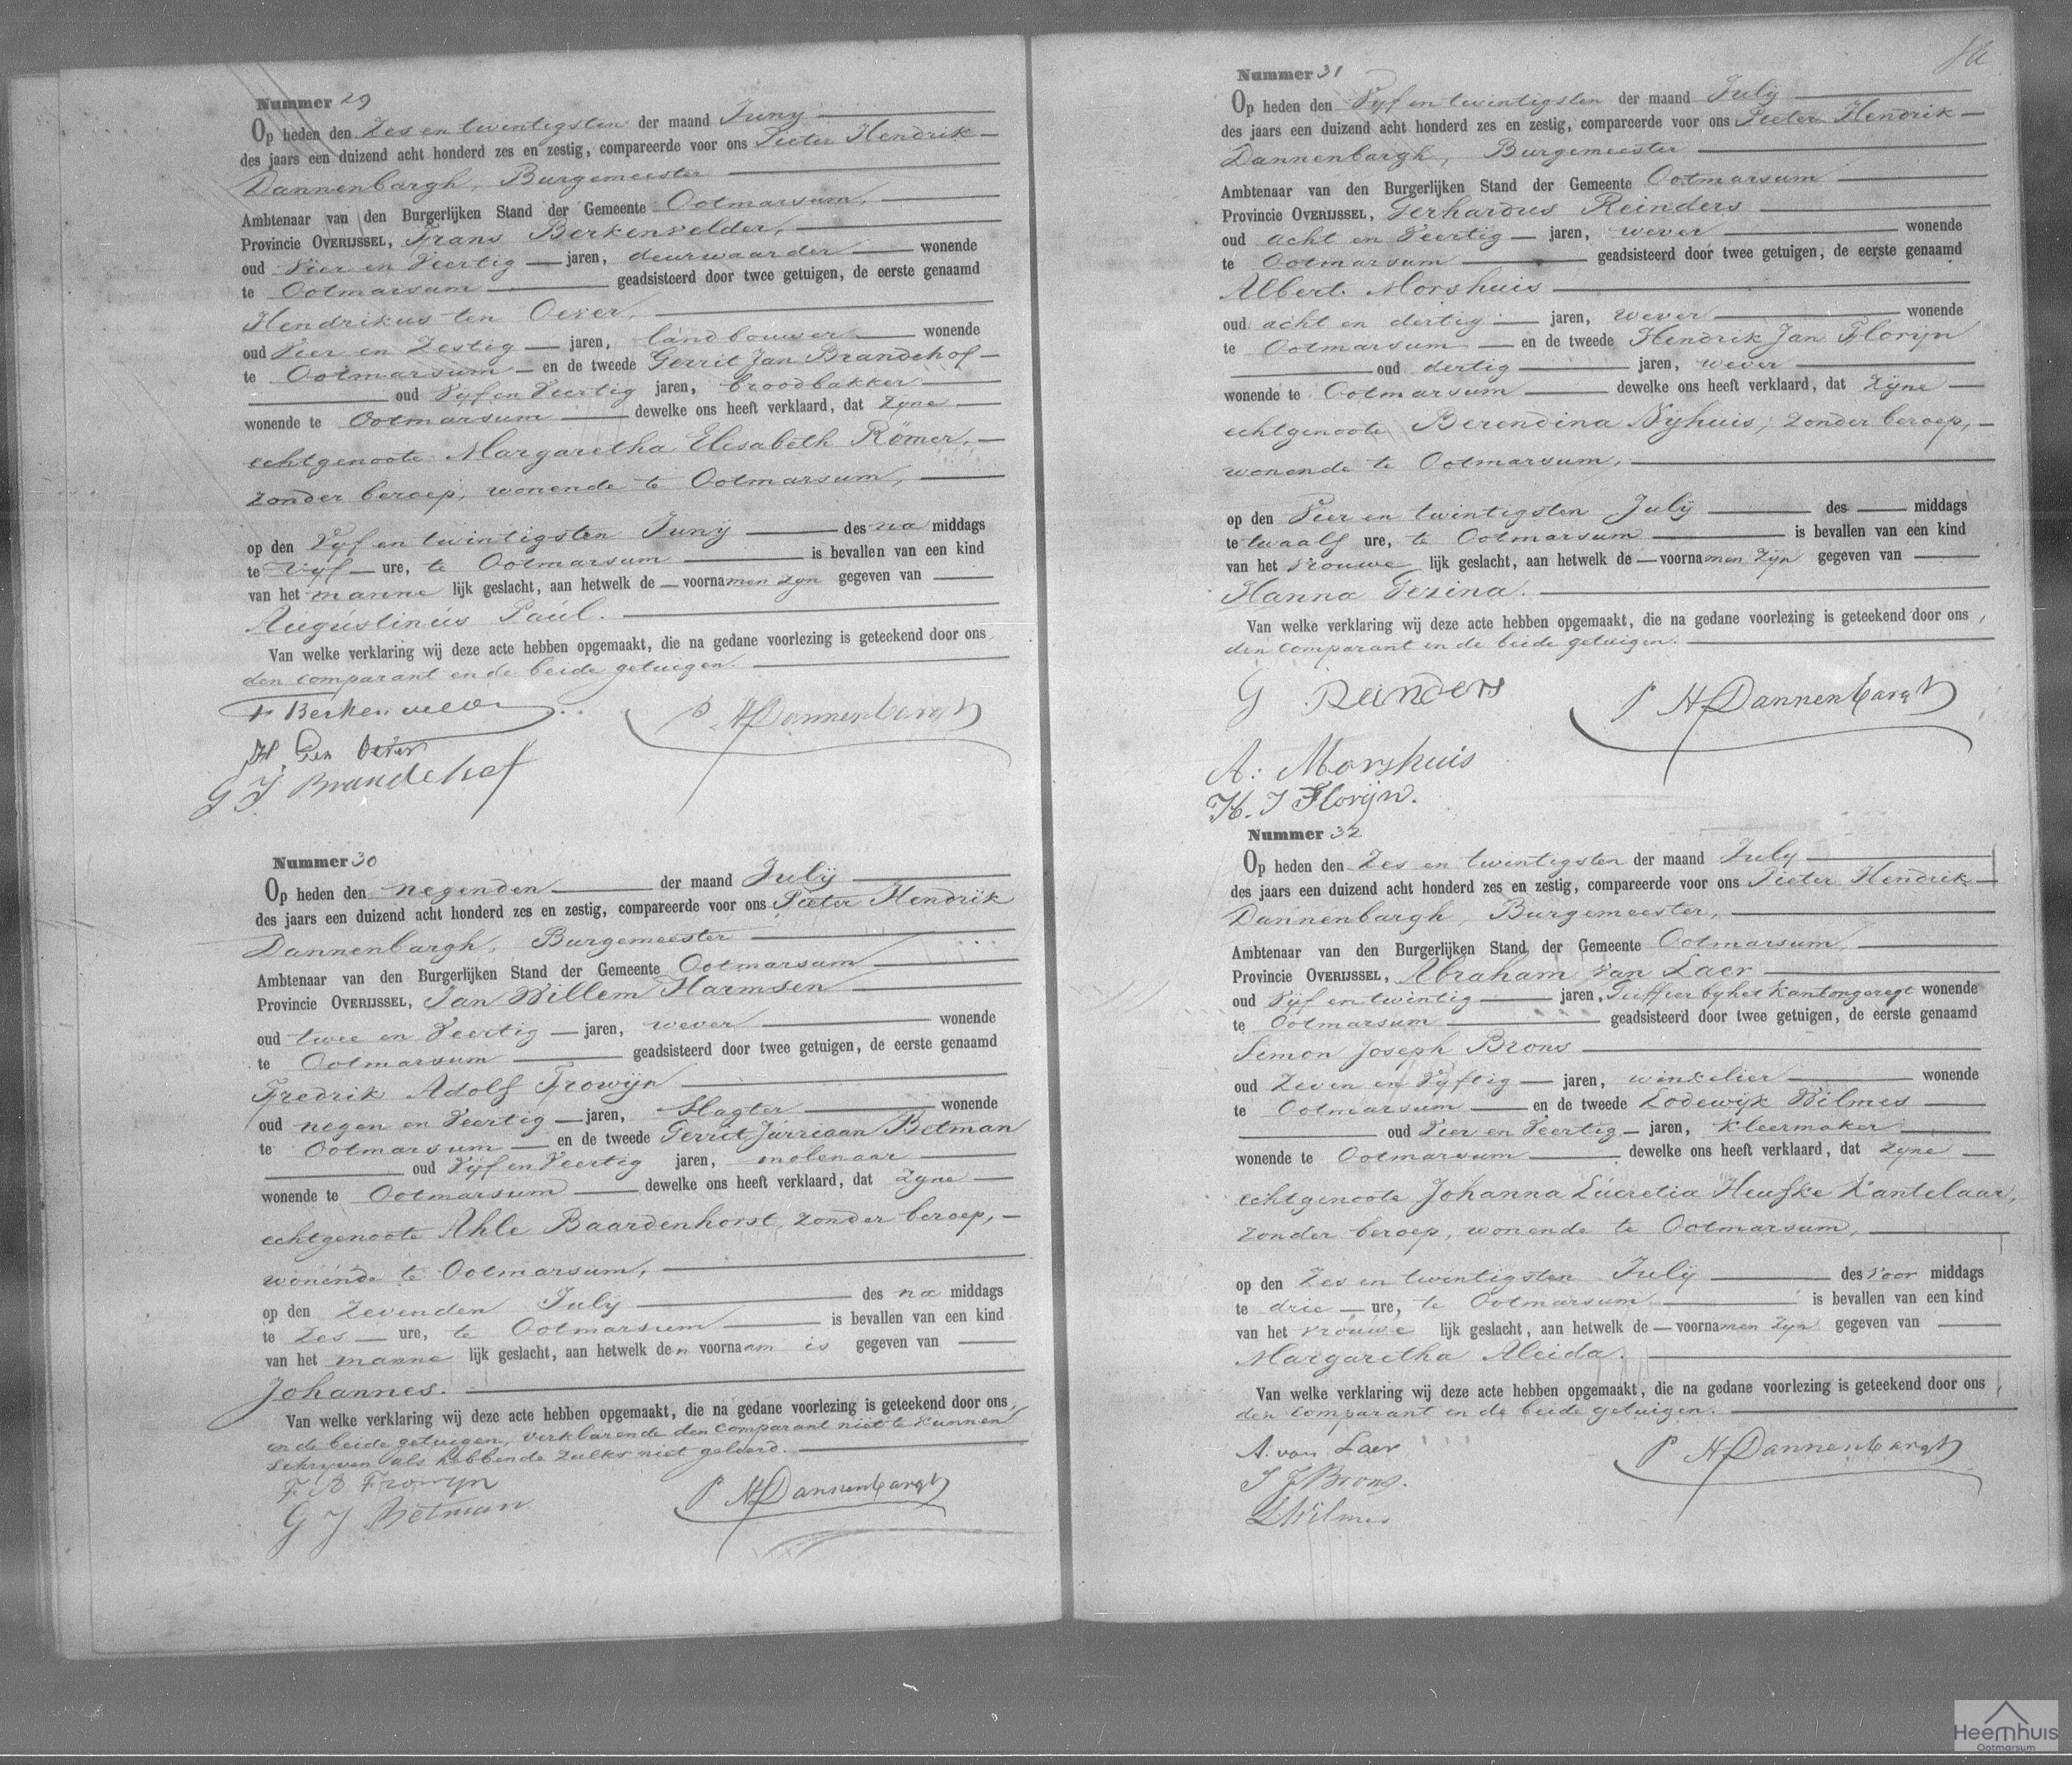 Nummer 29
Op heden den Zes en twintigsten der maand Junij
des jaars een duizend acht honderd zes en zestig, compareerde voor ons Pieter Hendrik
Dannenbargh, Burgemeester
Ambtenaar van den Burgerlijken Stand der Gemeente Ootmarsum,
Provincie OVERIJSSEL, Frans Berkenvelder,
oud Vier en Veertig jaren, deurwaarder wonende
te Ootmarsum geadsisteerd door twee getuigen, de eerste genaamd
Hendrikus ten Oever,
oud Vier en Zestig jaren, landbouwer wonende
te Ootmarsum en de tweede Gerrit Jan Brandehof
oud Vyf en Veertig jaren, broodbakker
wonende te Ootmarsum dewelke ons heeft verklaard, dat zyne
echtgenoote Margaretha Elisabeth Römer,
zonder beroep, wonende te Ootmarsum,
op den Vyf en twintigsten Junij des na middags
te Vyf ure, te Ootmarsum is bevallen van een kind
van het manne lijk geslacht, aan hetwelk de voornamen zyn gegeven van
Augústinús Paúl.
Van welke verklaring wij deze acte hebben opgemaakt, die na gedane voorlezing is geteekend door ons,
den comparant en de beide getuigen.
F Berkenvelder
P H Dannenbargh
H. Ten Oever
G J Brandehof
Nummer 30
Op heden den negenden der maand Julij
des jaars een duizend acht honderd zes en zestig, compareerde voor ons Pieter Hendrik
Dannenbargh, Burgemeester
Ambtenaar van den Burgerlijken Stand der Gemeente Ootmarsum
Provincie OVERIJSSEL, Jan Willem Harmsen
oud twee en Veertig jaren, wever wonende
te Ootmarsum geadsisteerd door twee getuigen, de eerste genaamd
Fredrik Adolf Frowijn
oud negen en Veertig jaren, Slagter wonende
te Ootmarsum en de tweede Gerrit Jurriaan Betman
oud Vyf en Veertig jaren, molenaar
wonende te Ootmarsum dewelke ons heeft verklaard, dat zyne
echtgenoote Ahle Baardenhorst, zonder beroep,
wonende te Ootmarsum,
op den Zevenden Julij des na middags
te Zes ure, te Ootmarsum is bevallen van een kind
van het manne lijk geslacht, aan hetwelk den voornaam is gegeven van
Johannes.
Van welke verklaring wij deze acte hebben opgemaakt, die na gedane voorlezing is geteekend door ons,
en de beide getuigen, verklarende den comparant niet te kunnen
schryven als hebbende zulks niet geleerd.
F. A Frowyn
G J Betman
P H Dannenbargh
Nummer 31
Op heden den Vyf en twintigsten der maand July
des jaars een duizend acht honderd zes en zestig, compareerde voor ons Pieter Hendrik
Dannenbargh, Burgemeester
Ambtenaar van den Burgerlijken Stand der Gemeente Ootmarsum
Provincie OVERIJSSEL, Gerhardus Reinders
oud acht en Veertig jaren, wever wonende
te Ootmarsum geadsisteerd door twee getuigen, de eerste genaamd
Albert Morshuis
oud acht en dertig jaren, wever wonende
te Ootmarsum en de tweede Hendrik Jan Florijn
oud dertig jaren, wever
wonende te Ootmarsum dewelke ons heeft verklaard, dat zyne
echtgenoote Berendina Nyhuis, zonder beroep,
wonende te Ootmarsum,
op den Vier en twintigsten Julij des middags
te twaalf ure, te Ootmarsum is bevallen van een kind
van het vrouwe lijk geslacht, aan hetwelk de voornamen zyn gegeven van
Hanna Gezina.
Van welke verklaring wij deze acte hebben opgemaakt, die na gedane voorlezing is geteekend door ons,
den comparant en de beide getuigen.
G Reinders
P H Dannenbargh
A: Morshuis
H. J Florijn.
Nummer 32
Op heden den Zes en twintigsten der maand July
des jaars een duizend acht honderd zes en zestig, compareerde voor ons Pieter Hendrik
Dannenbargh, Burgemeester,
Ambtenaar van den Burgerlijken Stand der Gemeente Ootmarsum,
Provincie OVERIJSSEL, Abraham van Laer
oud Vyf en twintig jaren, Griffier by het Kantongeregt wonende
te Ootmarsum geadsisteerd door twee getuigen, de eerste genaamd
Simon Joseph Brons
oud Zeven en Vyftig jaren, winkelier wonende
te Ootmarsum en de tweede Lodewijk Wilmes
oud Vier en Veertig jaren, Kleermaker
wonende te Ootmarsum dewelke ons heeft verklaard, dat zyne
echtgenoote Johanna Lúcretia Heufke Kantelaar,
zonder beroep, wonende te Ootmarsum,
op den Zes en twintigsten Julij des voor middags
te drie ure, te Ootmarsum is bevallen van een kind
van het vrouwe lijk geslacht, aan hetwelk de voornamen zyn gegeven van
Margaretha Aleida.
Van welke verklaring wij deze acte hebben opgemaakt, die na gedane voorlezing is geteekend door ons,
den comparant en de beide getuigen.
A. van Laer
P H Dannenbargh
S J Brons.
L Wilmes
Heemhuis
Ootmarsum